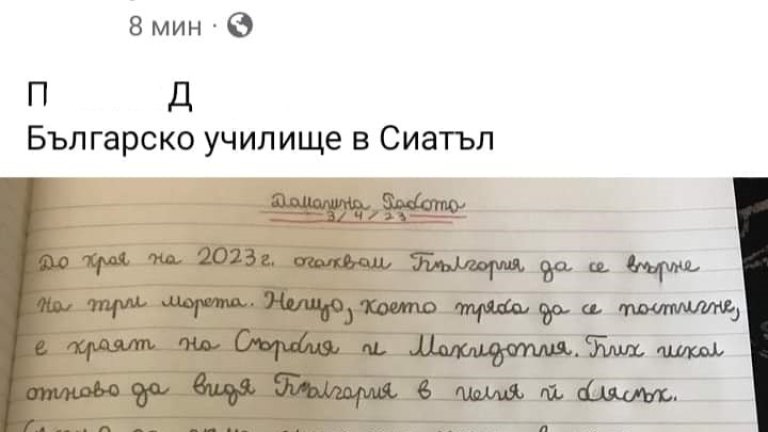 8 мин ·
П Д
Българско училище в Сиатъл
Домашна Работа
3/4/23
До края на 2023 г. очаквам България да се върне
на три морета. Нещо, което тряба да се постигне,
е краят на Сърбия и Македония. Бих искал
отново да видя България в целия ѝ блясък.